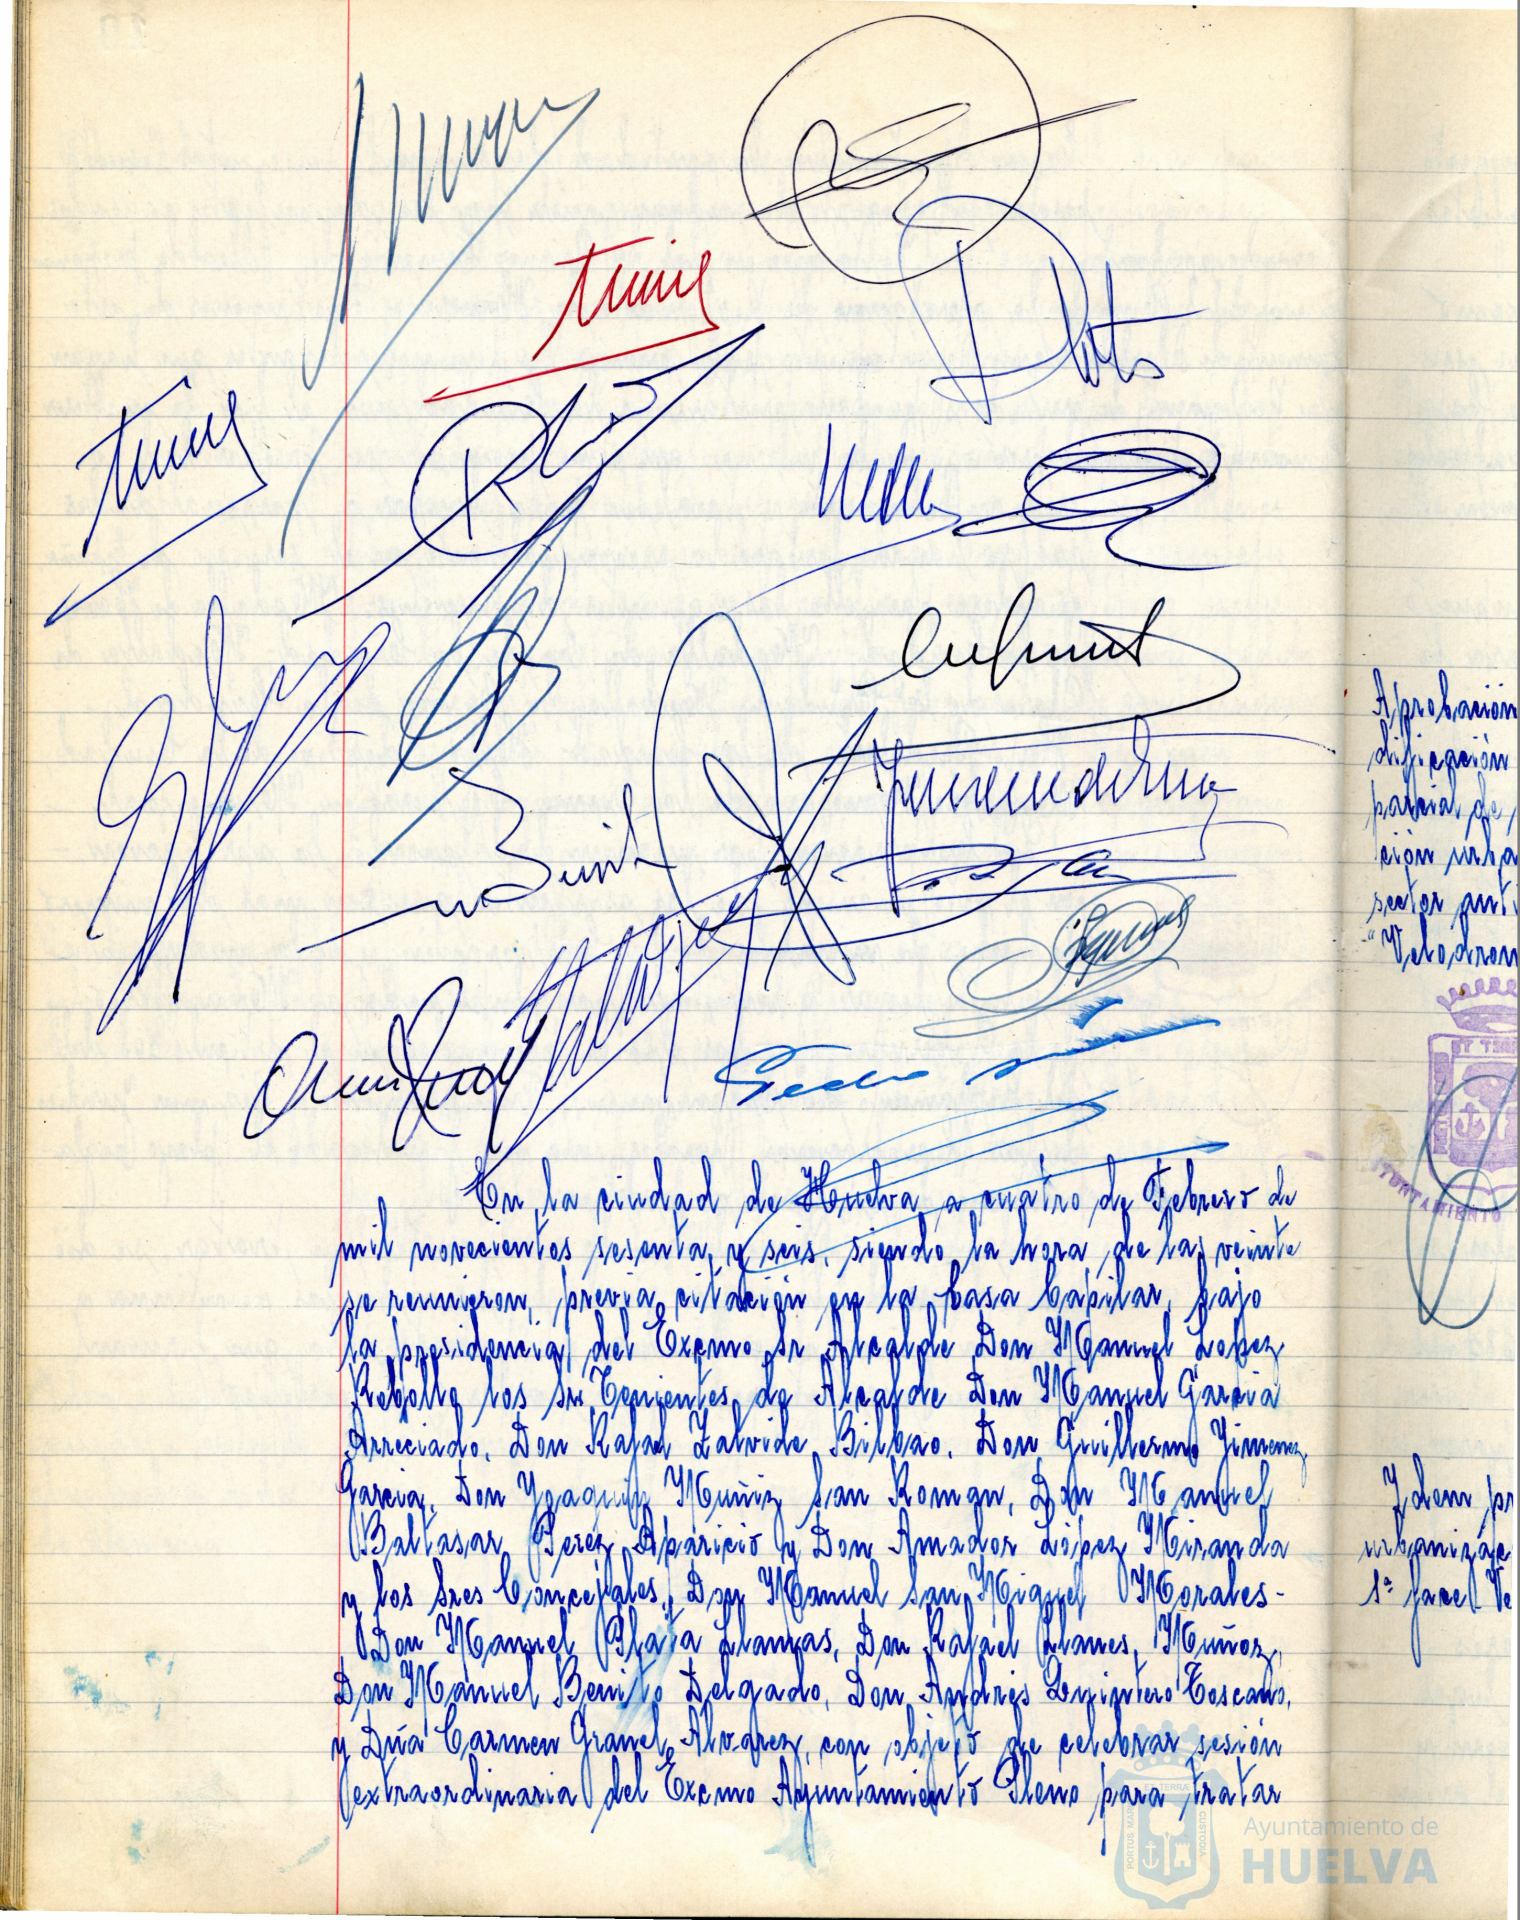 En la ciudad de Huelva a cuatro de Febrero de
mil novecientos sesenta y seis, siendo la hora de las veinte
se reunieron, previa citación en la Casa Capitular, bajo
la presidencia del Excmo Sr Alcalde Don Manuel Lopez
Rebollo los Srs Tenientes de Alcalde Don Manuel Garcia
Arreciado, Don Rafael Zalvide Bilbao, Don Guillermo Jimenez
Garcia, Don Joaquin Muñiz San Roman, Don Manuel
Baltasar Perez Aparicio y Don Amador López Miranda
y los Sres Concejales, Don Manuel San Miguel Morales-
Don Manuel Plata Llamas, Don Rafael Llanes Muñoz,
Don Manuel Benito Delgado, Don Andrés Quintero Toscano,
y Dña Carmen Granel Alvarez, con objeto de celebrar sesión
extraordinaria del Excmo Ayuntamiento Pleno para tratar
Aprobación
dificación
parcial de
ción urba
sector anti
"Velodrom
AYUNTAMIENTO
Idem pr
urbanizac
1ª face Ve
PORTUS MARIS ET TERRAE CUSTODIA
Ayuntamiento de
HUELVA